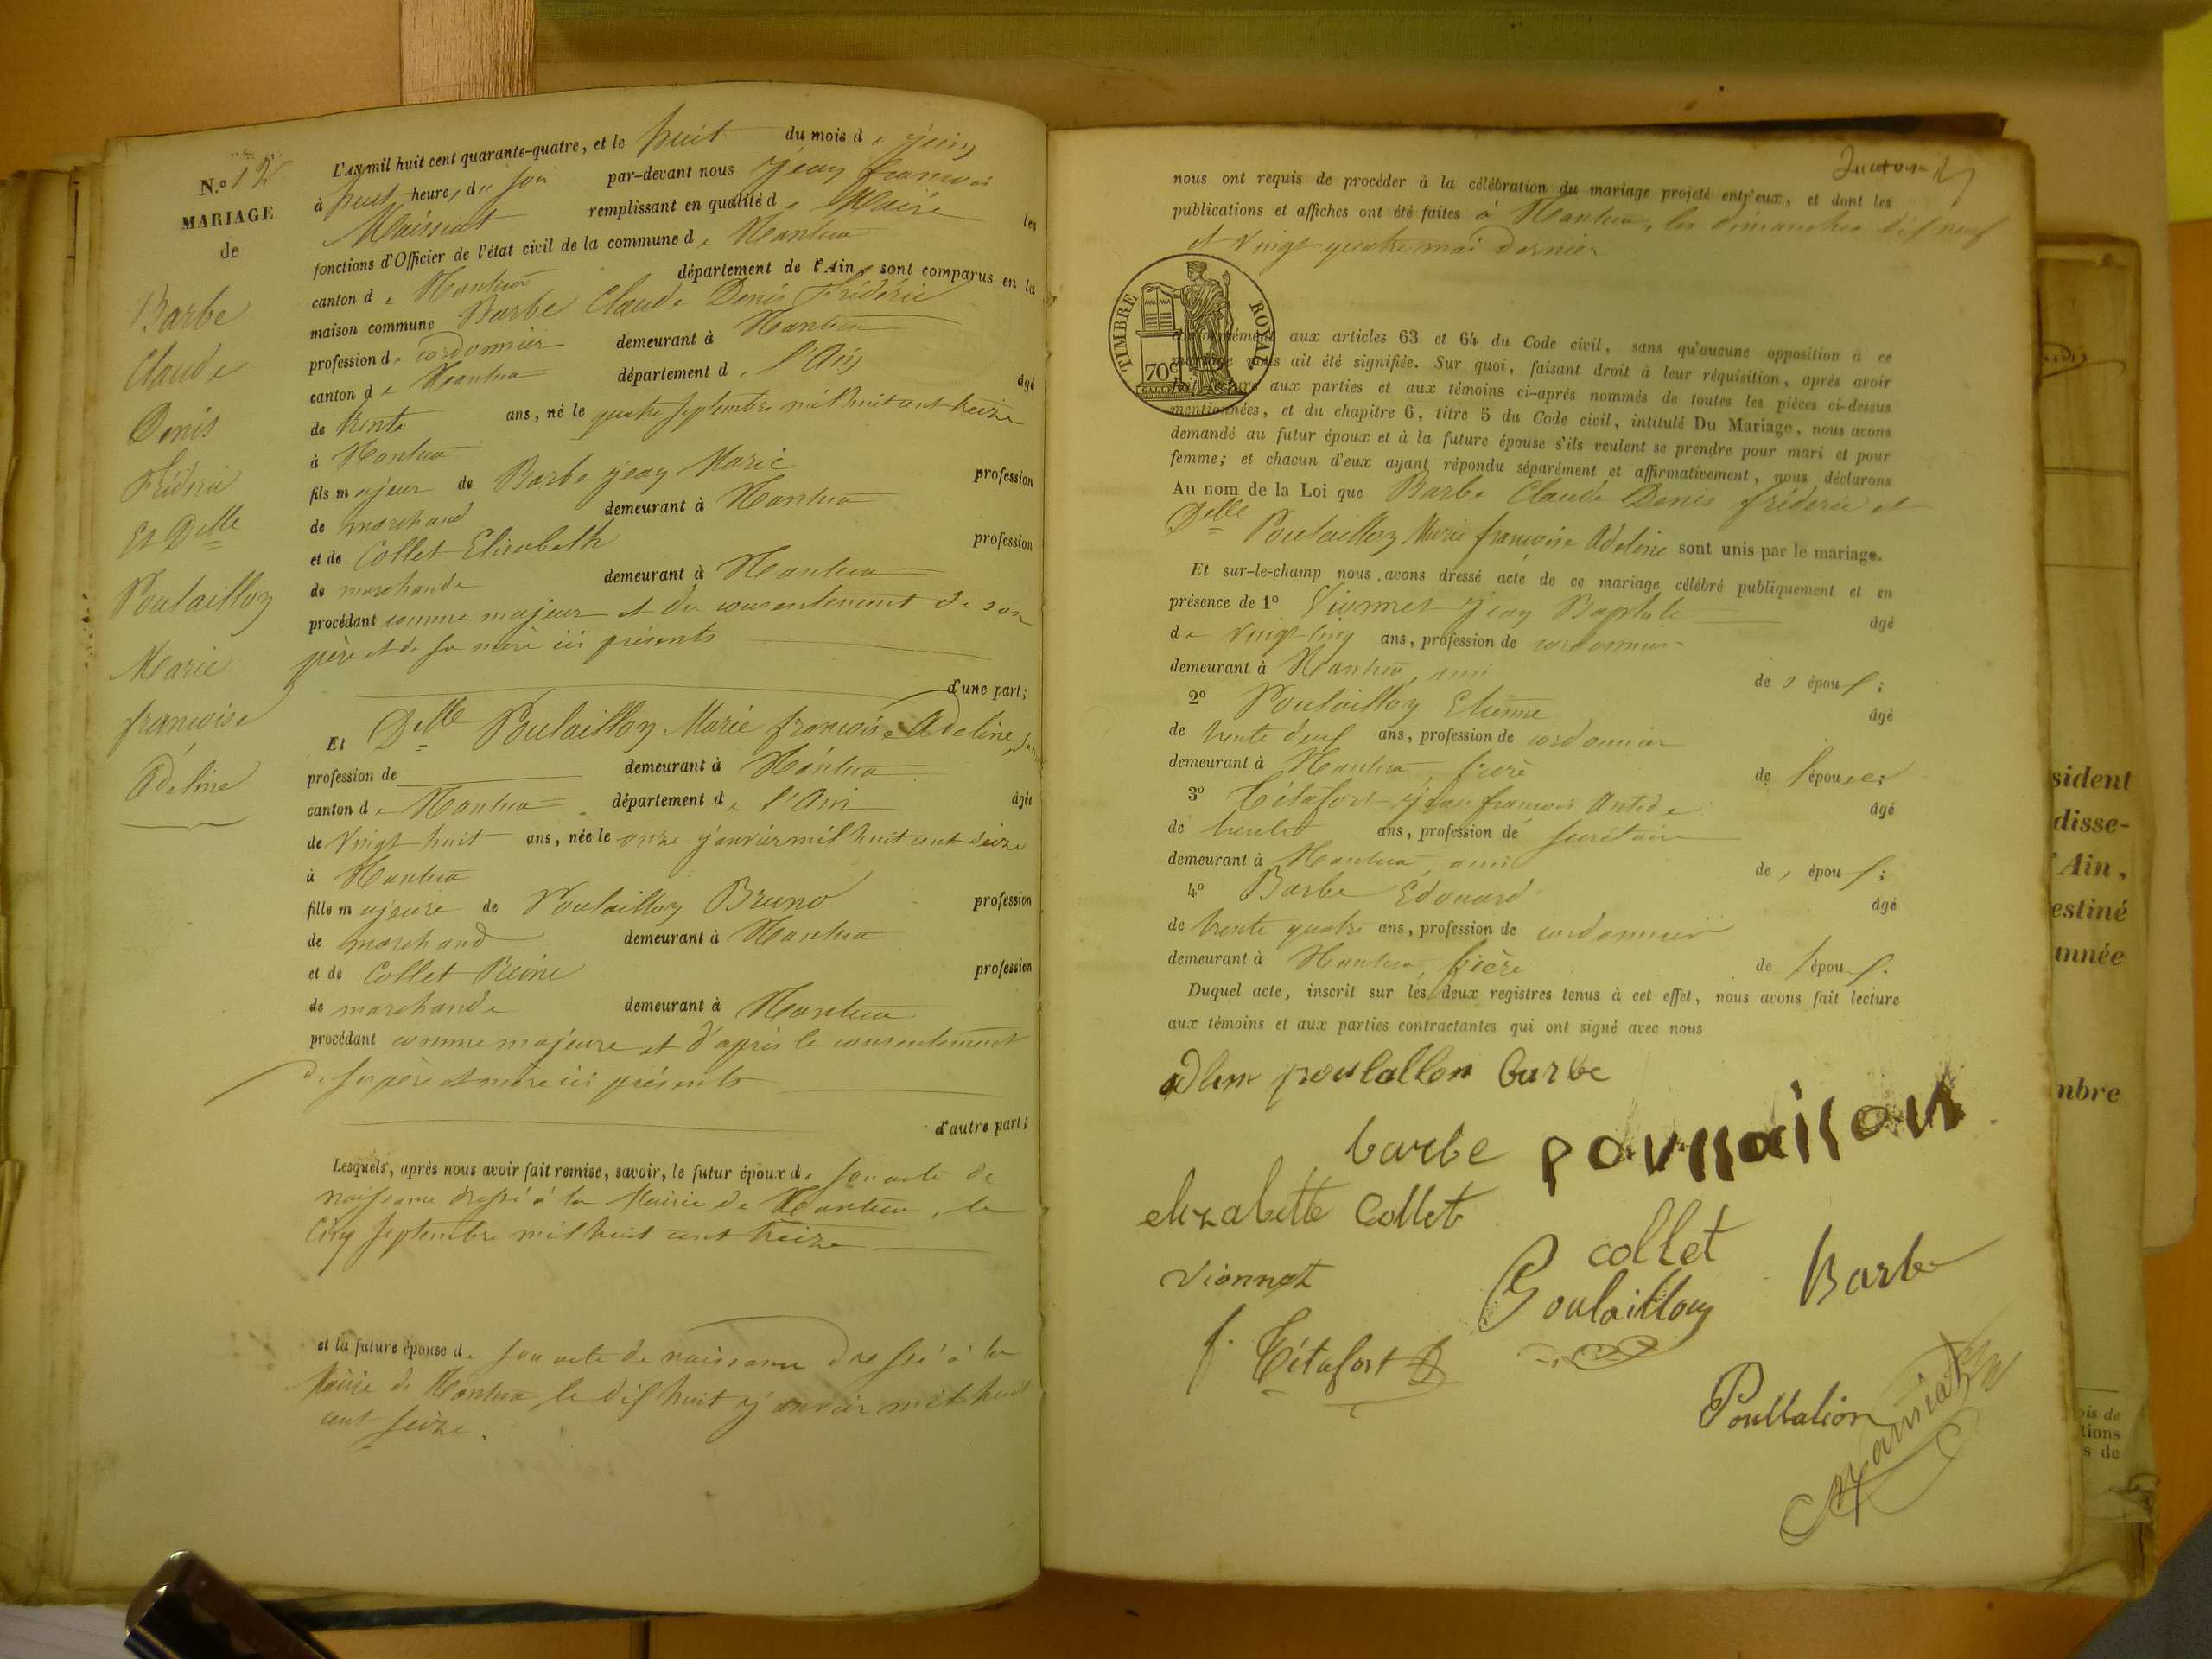 N.º 12
MARIAGE
de
Barbe
Claude
Denis
Fréderic
Et Delle
Poulaillon
Marie
françoise
Adeline
L'AN mil huit cent quarante-quatre, et le huit du mois de juin
à huit heures du soir par-devant nous jean françois
Maissiat remplissant en qualité de Maire les
fonctions d'Officier de l'état civil de la commune de Nantua
canton de Nantua département de l'Ain, sont comparus en la
maison commune Barbe Claude Denis Fréderic
profession de cordonnier demeurant à Nantua
canton de Nantua département de l'Ain âgé
de trente ans, né le quatre septembre mil huit cent treize
à Nantua
fils majeur de Barbe jean Marie profession
de marchand demeurant à Nantua
et de Collet Elisabeth profession
de marchande demeurant à Nantua
procédant comme majeur et du consentement de son
père et de sa mère ici présents
d'une part;
Et Delle Poulaillon Marie françoise Adeline, san
profession de demeurant à Nantua
canton de Nantua département de l'Ain âgée
de vingt huit ans, née le onze janvier mil huit cent seize
à Nantua
fille majeure de Poulaillon Bruno profession
de marchand demeurant à Nantua
et de Collet Reine profession
de marchande demeurant à Nantua
procédant comme majeure et d'après le consentement
de ses père et mère ici présents
d'autre part;
Lesquels, après nous avoir fait remise, savoir, le futur époux de son acte de
naissance dressé à la Mairie de Nantua, le
cinq septembre mil huit cent treize
et la future épouse de son acte de naissance dressé à la
Mairie de Nantua le dix huit janvier mil huit
cent seize.
nous ont requis de procéder à la célébration du mariage projeté entr'eux, et dont les
publications et affiches ont été faites à Nantua, les dimanches dix neuf
et vingt quatre mai dernier
TIMBRE ROYAL
70c
GALLE
conformément aux articles 63 et 64 du Code civil, sans qu'aucune opposition à ce
mariage nous ait été signifiée. Sur quoi, faisant droit à leur réquisition, après avoir
fait lecture aux parties et aux témoins ci-après nommés de toutes les pièces ci-dessus
mentionnées, et du chapitre 6, titre 5 du Code civil, intitulé Du Mariage, nous avons
demandé au futur époux et à la future épouse s'ils veulent se prendre pour mari et pour
femme; et chacun d'eux ayant répondu séparément et affirmativement, nous déclarons
Au nom de la Loi que Barbe Claude Denis fréderic et
Delle Poulaillon Marie françoise Adeline sont unis par le mariage.
Et sur-le-champ nous avons dressé acte de ce mariage célébré publiquement et en
présence de 1º Vionnet jean Baptiste âgé
de vingt cinq ans, profession de cordonnier
demeurant à Nantua, ami de l'époux;
2º Poulaillon Etienne âgé
de trente deux ans, profession de cordonnier
demeurant à Nantua, frère de l'épouse;
3º Tétafort jean françois Antide âgé
de trente ans, profession de secrétaire
demeurant à Nantua, ami de l'époux;
4º Barbe Edouard âgé
de trente quatre ans, profession de cordonnier
demeurant à Nantua, frère de l'époux.
Duquel acte, inscrit sur les deux registres tenus à cet effet, nous avons fait lecture
aux témoins et aux parties contractantes qui ont signé avec nous
adline poulallon barbe
barbe
elizabette Collet
collet
Vionnet
Poulaillon
Barbe
f. Tétafort
Poullalion
Maissiat
sident
disse-
'Ain,
estiné
année
mbre
ois de
tions
s de